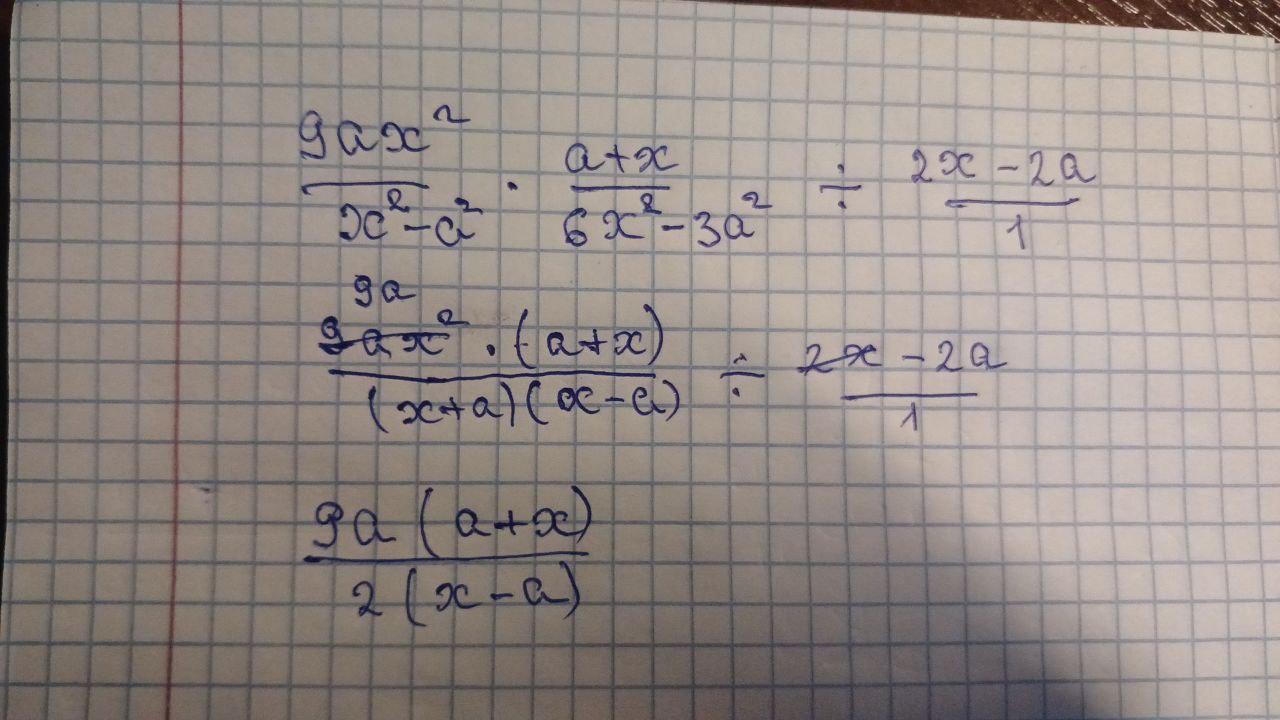 9ax² / x²-a² · a+x / 6x²-3a² ÷ 2x-2a / 1
9a
9ax² · (a+x) / (x+a)(x-a) ÷ 2x-2a / 1
9a(a+x) / 2(x-a)